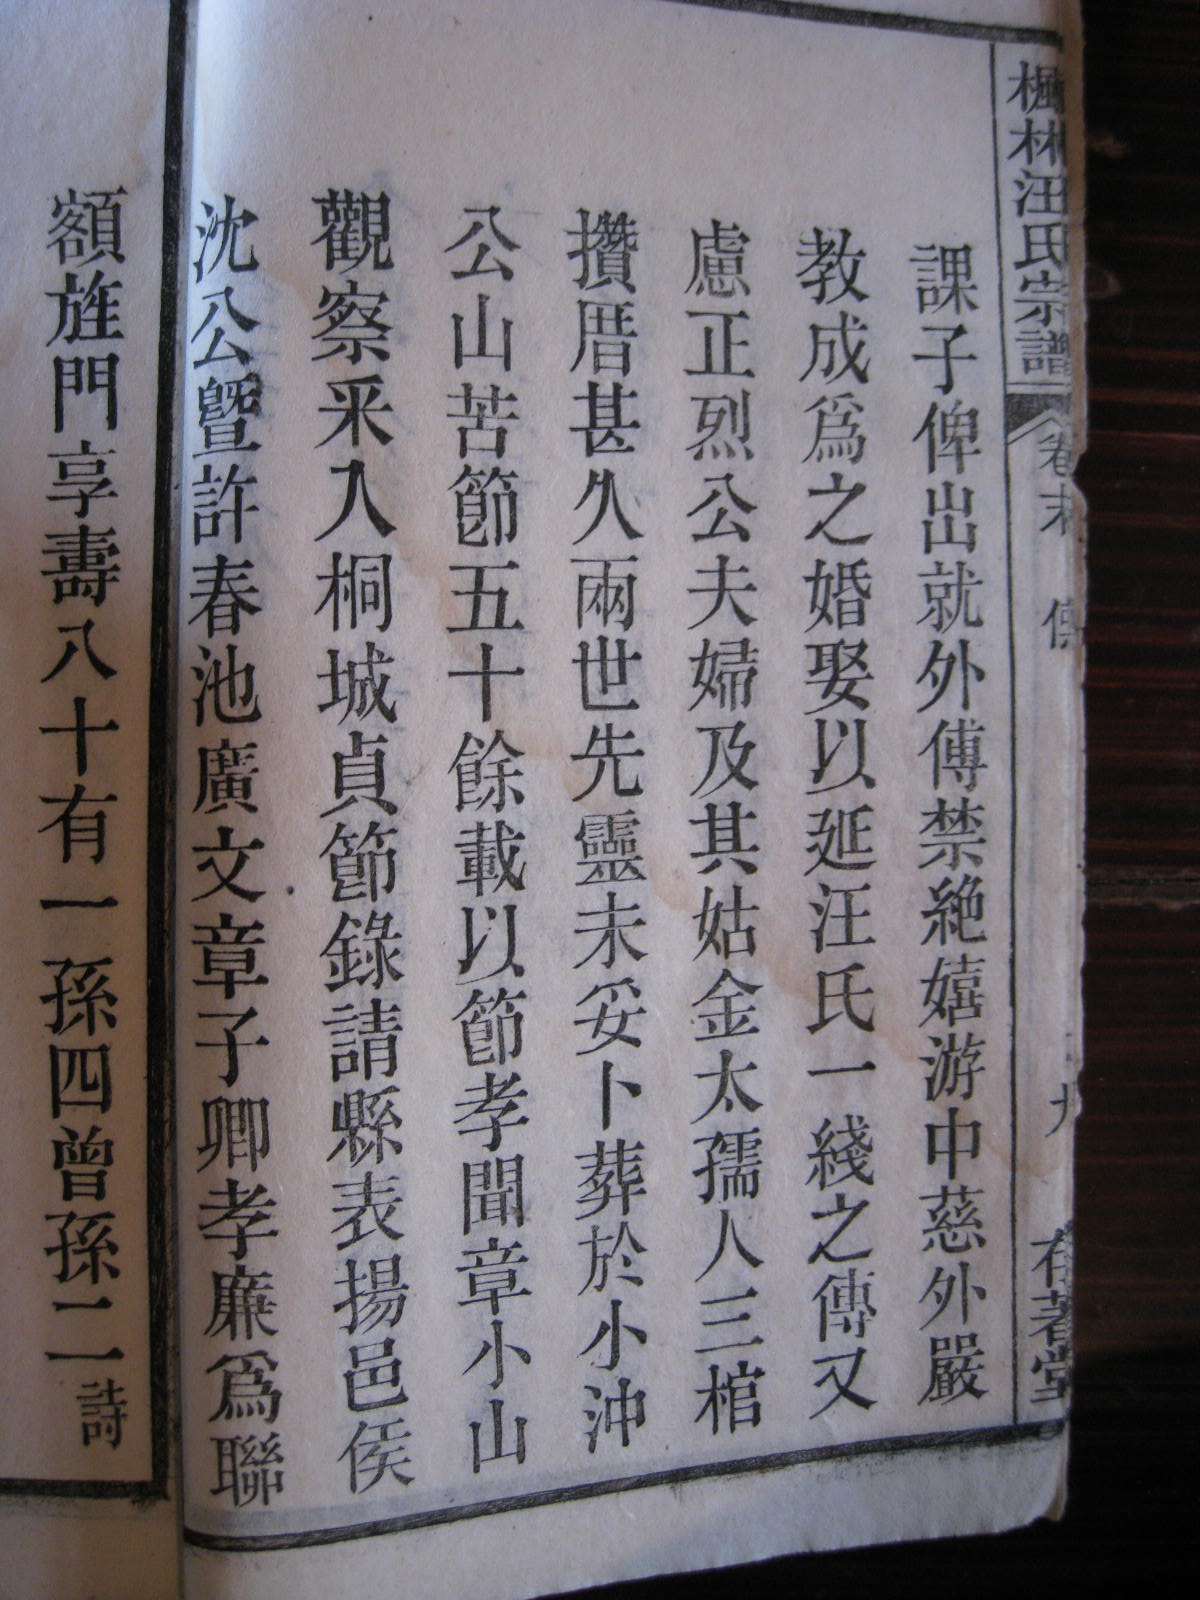 楓林汪氏宗譜 卷末 傳 九 著堂
課子俾出就外傅禁絕嬉游中慈外嚴
教成爲之婚娶以延汪氏一綫之傳又
慮正烈公夫婦及其姑金太孺人三棺
攢厝甚久兩世先靈未妥卜葬於小沖
公山苦節五十餘載以節孝聞章小山
觀察采入桐城貞節錄請縣表揚邑侯
沈公暨許春池廣文章子卿孝廉爲聯
額旌門享壽八十有一孫四曾孫二詩